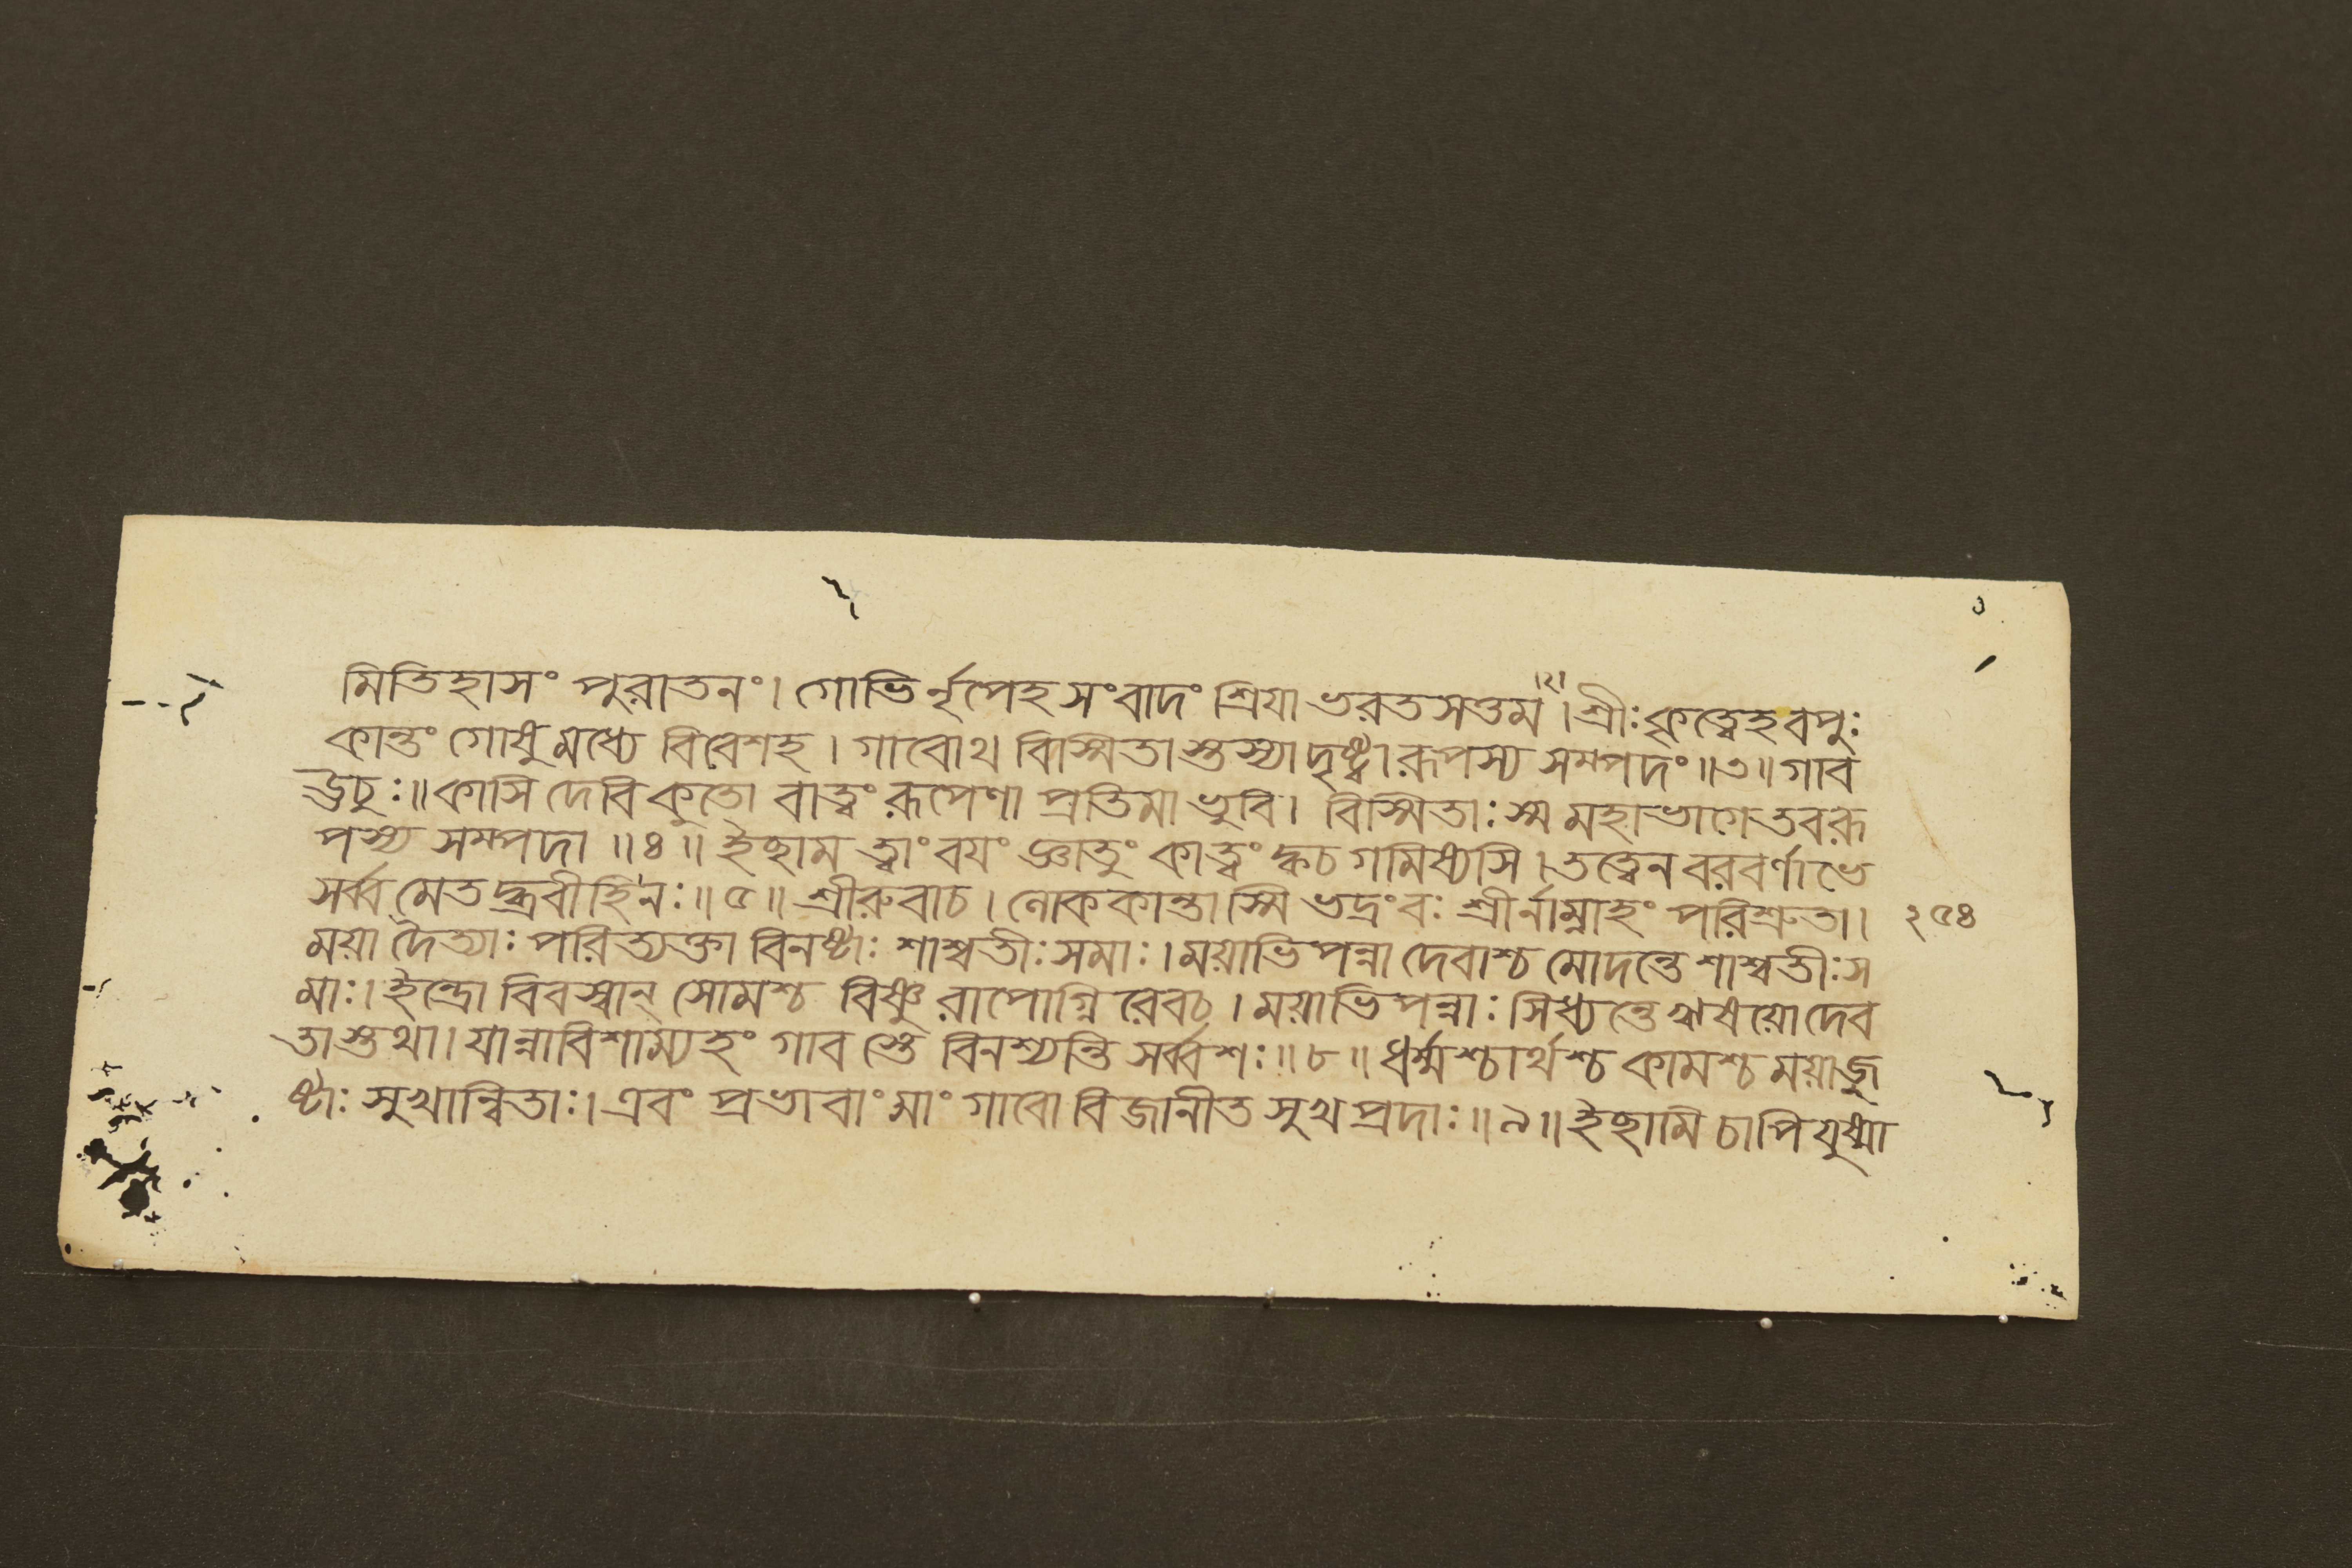 মিতিহাসং পুরাতনং। গোভির্নৃপেহ সংবাদং শ্রিযা ভরতসত্তম ।২। শ্রীঃ কৃত্বেহ বপুঃ
কান্তং গোষু মধ্যে বিবেশহ। গাবোথ বিস্মিতাস্তস্যা দৃষ্ট্বা রূপস্য সম্পদং॥৩॥ গাব
ঊচুঃ॥ কাসি দেবি কুতো বাত্বং রূপেণা প্রতিমা ভুবি। বিস্মিতাঃ স্ম মহাভাগে তবরূ
পস্য সম্পদা ॥৪॥ ইছাম ত্বাং বযং জ্ঞাতুং কাত্বং ক্কচ গমিষ্যসি। তত্ত্বেন বরবর্ণাভে
সর্ব্বমেতদ্ব্রবীহি নঃ॥৫॥ শ্রীরুবাচ। লোককান্তাস্মি ভদ্রংবঃ শ্রীর্নাম্নাহং পরিশ্রুতা। ২৫৪
ময়া দৈত্যাঃ পরিত্যক্তা বিনষ্টাঃ শাশ্বতীঃ সমাঃ। ময়াভিপন্না দেবাশ্চ মোদন্তে শাশ্বতীঃ স
মাঃ। ইন্দ্রো বিবস্বান্ সোমশ্চ বিষ্ণুরাপোগ্নিরেবচ। ময়াভিপন্নাঃ সিধ্যন্তে ঋষয়ো দেব
তাস্তথা। যান্নাবিশাম্যহং গাবস্তে বিনশ্যন্তি সর্ব্বশঃ॥৮॥ ধর্ম্মশ্চার্থশ্চ কামশ্চ ময়াজু
ষ্টাঃ সুখান্বিতাঃ। এবং প্রভাবাং মাং গাবো বিজানীত সুখপ্রদাঃ॥৯॥ ইছামি চাপি যুষ্মা